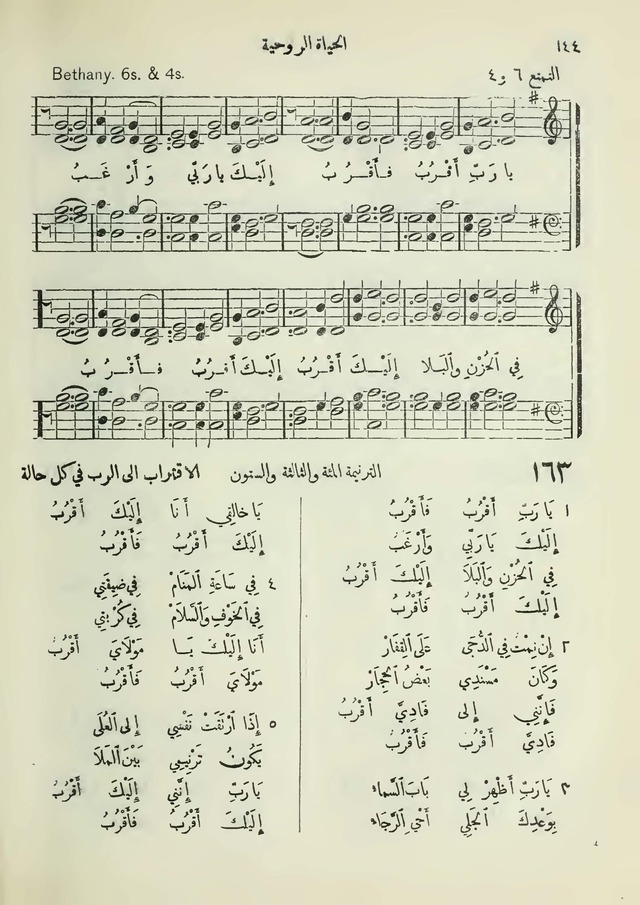 ١٤٤
الحياة الروحية
Bethany. 6s. & 4s.
التمتع ٦ و ٤
يا رَبِّ أَقْرُبُ فَأَقْـرُ بُ إِلَيْـكَ يا رَبّي وَ أَرْ غَـبُ
فِي ٱلحُزْنِ وٱلبَلا إِلَيْـكَ أَقْـرُبُ إِلَيْكَ أَقرُبُ فَـأَقْـرُ بُ
١٦٣ الترنيمة المئة والثالثة والستون الاقتراب الى الرب في كل حالة
١ يَا رَبِّ أَقْرُبُ فَأَقْرُبُ
إِلَيْكَ يَا رَبِّي وَأَرْغَبُ
فِي ٱلحُزْنِ وَٱلبَلَا إِلَيْكَ أَقْرُبُ
إِلَيْكَ أَقْرُبُ فَأَقْرُبُ
٢ إِنْ نِمْتُ فِي ٱلدُّجَى عَلَى ٱلقِفَارْ
وَكَانَ مَسْنَدِي بَعْضُ ٱلحِجَارْ
فَإِنَّنِي إِلى فَادِيَّ أَقْرُبُ
فَادِيَّ أَقْرُبُ فَأَقْرُبُ
٣ يَا رَبِّ أَظْهِرْ لِي بَابَ ٱلسَّمَاءْ
بِوَعْدِكَ ٱلجَلِي أَحْيِ ٱلرَّجَاءْ
يَا خَالِقِي أَنَا إِلَيْكَ أَقْرُبُ
إِلَيْكَ أَقْرُبُ فَأَقْرُبُ
٤ فِي سَاعَةِ ٱلمَنَامْ فِي ضِيقَتِي
فِي ٱلخَوْفِ وَٱلسَّلَامْ فِي كُرْبَتِي
أَنَا إِلَيْكَ يَـا مَوْلَايَ أَقْرُبُ
مَوْلَايَ أَقْرُبُ فَأَقْرُبُ
٥ إِذَا ٱرْتَقَتْ نَفْسِي إِلَى ٱلعُلَى
يَكُونُ تَرْنِيمِي بَيْنَ ٱلمَلَا
يَا رَبِّ إِنَّنِي إِلَيْكَ أَقْرُبُ
إِلَيْكَ أَقْرُبُ فَأَقْرُبُ